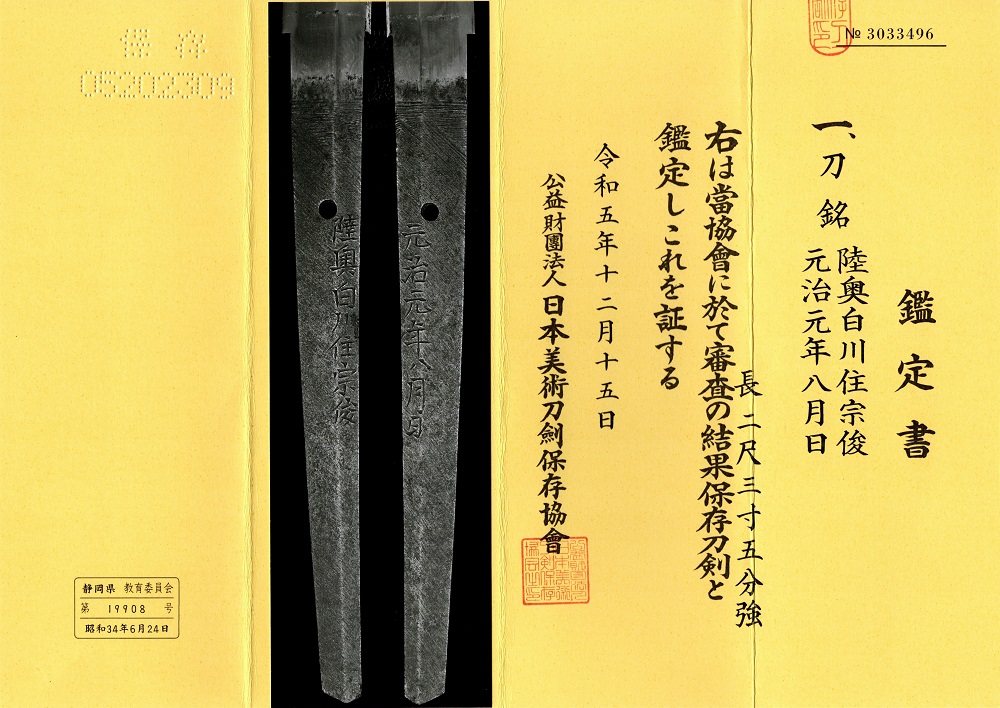 № 3033496
鑑定書
一、刀 銘 陸奥白川住宗俊
元治元年八月日
長 二尺三寸五分強
右は當協會に於て審査の結果保存刀剣と
鑑定しこれを証する
令和五年十二月十五日
公益財團法人 日本美術刀劍保存協會
元治元年八月日
陸奥白川住宗俊
保存
05202309
静岡県 教育委員会
第 19908 号
昭和34年6月24日